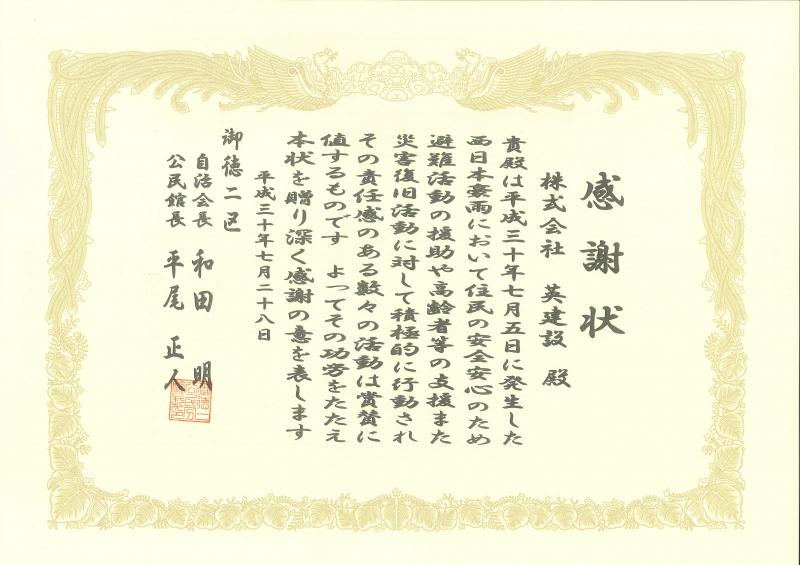 感謝状
株式会社 英建設 殿
貴殿は平成三十年七月五日に発生した
西日本豪雨において住民の安全安心のため
避難活動の援助や高齢者等の支援また
災害復旧活動に対して積極的に行動され
その責任感のある数々の活動は賞賛に
値するものです よってその功労をたたえ
本状を贈り深く感謝の意を表します
平成三十年七月二十八日
御徳二区
自治会長 和田 明
公民館長 平尾 正人